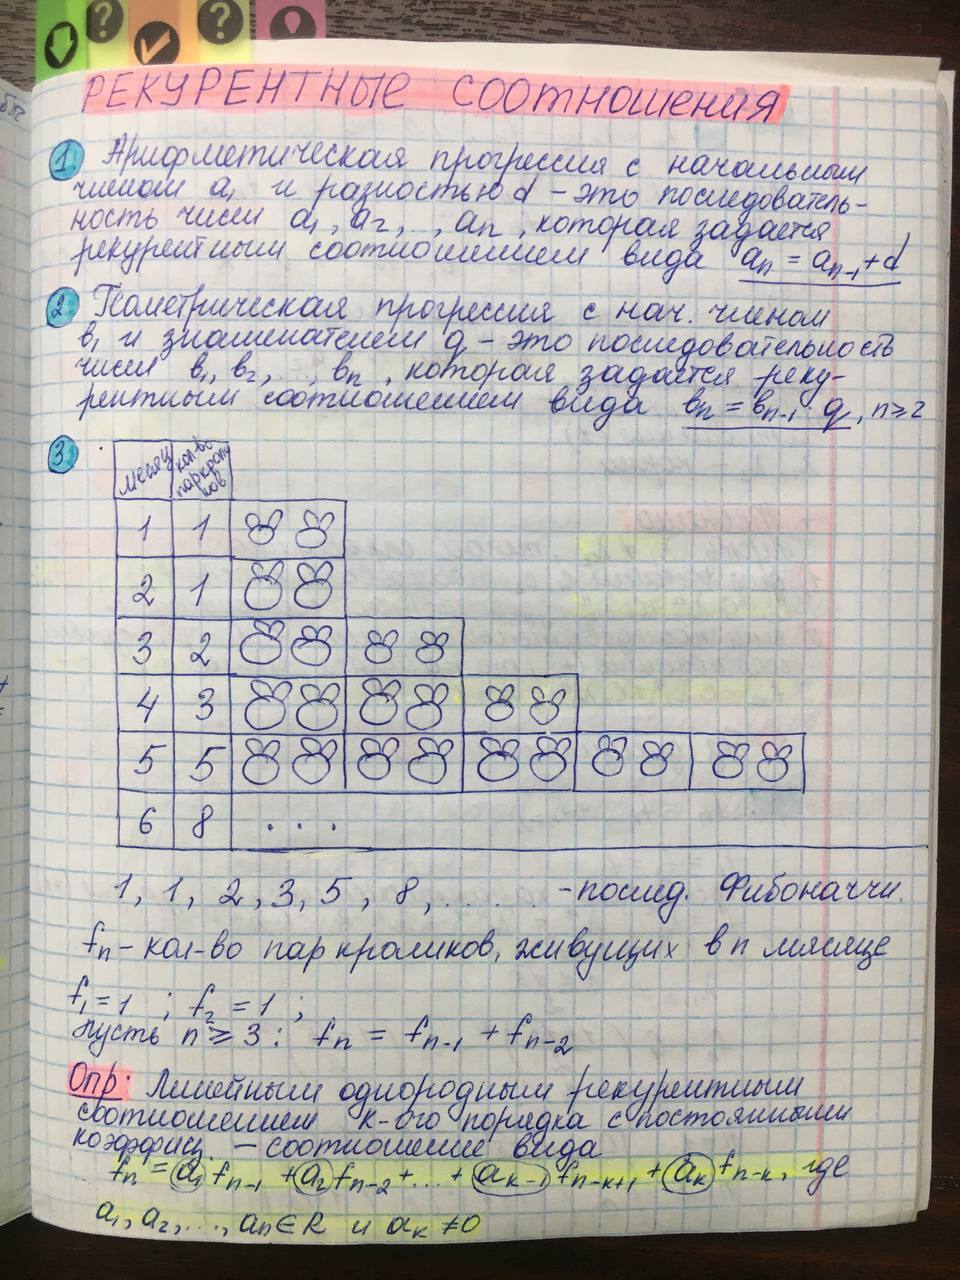 РЕКУРЕНТНЫЕ СООТНОШЕНИЯ
1 Арифметическая прогрессия с начальным
членом a₁ и разностью d – это последователь-
ность чисел a₁, a₂, .., aₙ, которая задаётся
рекурентным соотношением вида aₙ = aₙ₋₁ + d
2 Геометрическая прогрессия с нач. членом
b₁ и знаменателем q – это последовательность
чисел b₁, b₂, ..., bₙ, которая задаётся реку-
рентным соотношением вида bₙ = bₙ₋₁ · q, n ≥ 2
3
месяц кол-во пар кроли ков
1 1
2 1
3 2
4 3
5 5
6 8 . . .
1, 1, 2, 3, 5, 8, . . . . . – послед. Фибоначчи.
fₙ – кол-во пар кроликов, живущих в n месяце
f₁ = 1 ; f₂ = 1 ;
пусть n ≥ 3 : fₙ = fₙ₋₁ + fₙ₋₂
Опр: Линейным однородным рекурентным
соотношением к-ого порядка с постоянными
коэффиц. – соотношение вида
fₙ = a₁ fₙ₋₁ + a₂ fₙ₋₂ + ... + aₖ₋₁ fₙ₋ₖ₊₁ + aₖ fₙ₋ₖ, где
a₁, a₂, ..., aₙ ∈ R и aₖ ≠ 0